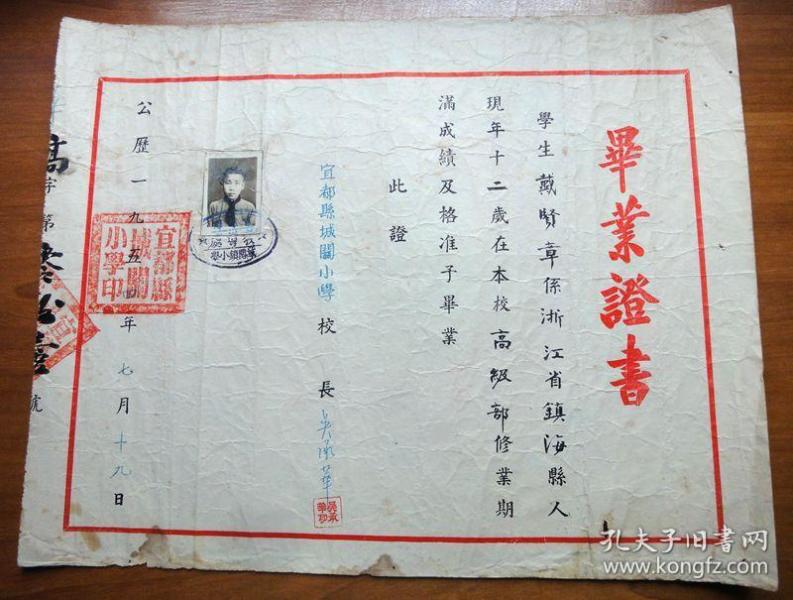 畢業證書
學生戴賢章係浙江省鎮海縣人
現年十二歲在本校高級部修業期
滿成績及格准予畢業
此證
宜都縣城關小學校長吳承華
吳承華印
公歷一九五四年七月十九日
宜都縣城關小學印
高字第 號
孔夫子旧书网
www.kongfz.com